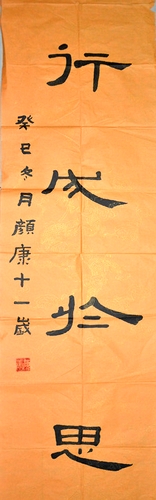 行成於思
癸巳冬月顏康十一歲